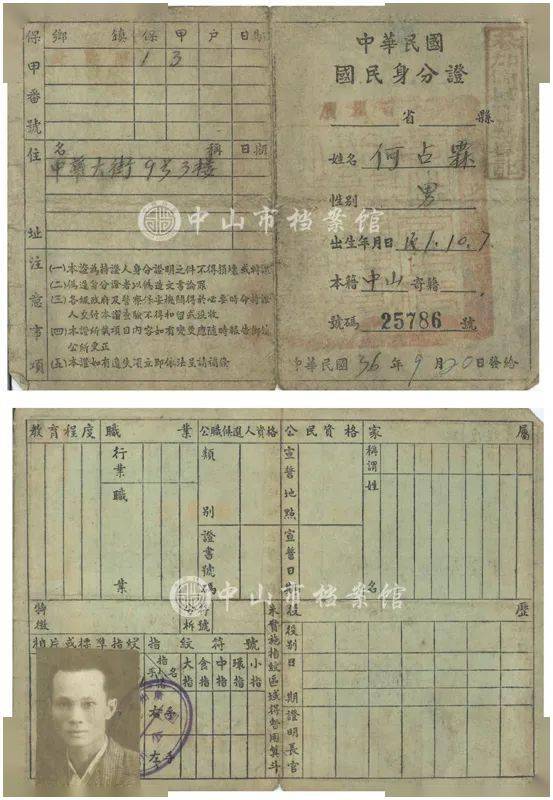 中華民國
國民身分證
省 縣
姓名 何占霖
性別 男
出生年月日 民1.10.7.
本籍 中山 寄籍
號碼 25786 號
中華民國36年9月20日發給
保甲番號
鄉 鎮 保 甲 戶 日期
1 3
住址
名稱 日期
中華大街9号3楼
中山市档案馆
注意事項
(一)本證為持證人身分證明之件不得損壞或轉讓
(二)偽造身分證者以偽造文書論罪
(三)各級政府及警察保安機關得於必要時命持證
人交付本證查驗不得扣留或沒收
(四)本證所載項目內容如有變更應隨時報告鄉鎮
公所更正
(五)本證如有遺失須立即依法呈請補發
教育程度
職業
行業
職業
公職候選人資格
類別
證書號碼
公民資格
宣誓地點
宣誓日期
家屬
稱謂
姓名
中山市档案馆
特徵
相片或標準指紋
指紋符號
分析
符號
指名
手別
大指
食指
中指
環指
小指
右手
左手
未實施指紋區域得暫用箕斗
役歷
役別
日期
證明長官